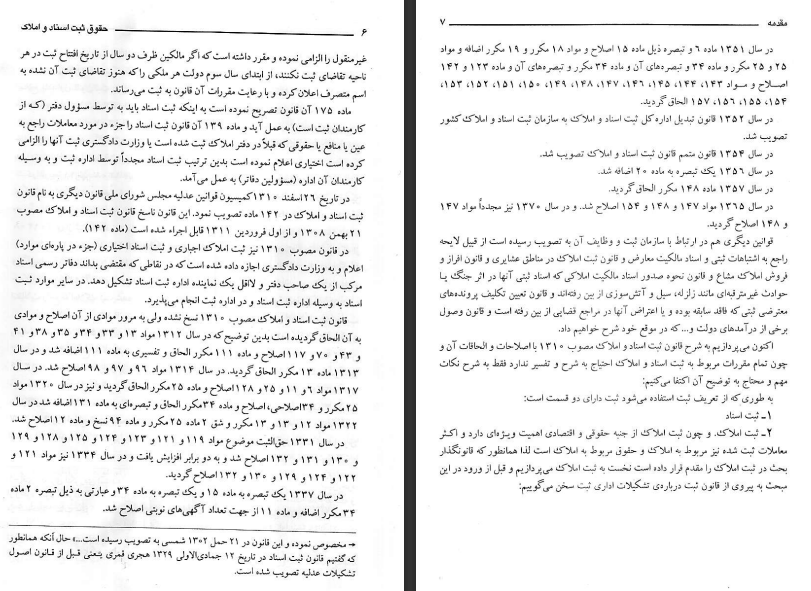 ۶ حقوق ثبت اسناد و املاک
غیرمنقول را الزامی نموده و مقرر داشته است که اگر مالکین ظرف دو سال از تاریخ افتتاح ثبت در هر
ناحیه تقاضای ثبت نکنند، از ابتدای سال سوم دولت هر ملکی را که هنوز تقاضای ثبت آن نشده به
اسم متصرف اعلان کرده و با رعایت مقررات آن قانون به ثبت می‌رساند.
ماده ۱۷۵ آن قانون تصریح نموده است به اینکه ثبت اسناد باید به توسط مسؤول دفتر (که از
کارمندان ثبت است) به عمل آید و ماده ۱۳۹ آن قانون ثبت اسناد را جزء در مورد معاملات راجع به
عین یا منافع یا حقوقی که قبلاً در دفتر املاک ثبت شده است یا وزارت دادگستری ثبت آنها را الزامی
کرده است اختیاری اعلام نموده است بدین ترتیب ثبت اسناد مجدداً توسط اداره ثبت و به وسیله
کارمندان آن اداره (مسؤولین دفاتر) به عمل می‌آمد.
در تاریخ ۲۶ اسفند ۱۳۱۰ کمیسیون قوانین عدلیه مجلس شورای ملی قانون دیگری به نام قانون
ثبت اسناد و املاک در ۱۴۲ ماده تصویب نمود. این قانون ناسخ قانون ثبت اسناد و املاک مصوب
۲۱ بهمن ۱۳۰۸ و از اول فروردین ۱۳۱۱ قابل اجراء شده است (ماده ۱۴۲).
در قانون مصوب ۱۳۱۰ نیز ثبت املاک اجباری و ثبت اسناد اختیاری (جزء در پاره‌ای موارد)
اعلام و به وزارت دادگستری اجازه داده شده است که در نقاطی که مقتضی بداند دفاتر رسمی اسناد
مرکب از یک صاحب دفتر و لااقل یک نماینده اداره ثبت اسناد تشکیل دهد. در سایر موارد ثبت
اسناد به وسیله اداره ثبت اسناد و در اداره ثبت انجام می‌پذیرد.
قانون ثبت اسناد و املاک مصوب ۱۳۱۰ نسخ نشده ولی به مرور موادی از آن اصلاح و موادی
به آن الحاق گردیده است بدین توضیح که در سال ۱۳۱۲ مواد ۱۳ و ۳۳ و ۳۴ و ۳۵ و ۳۸ و ۴۱
و ۴۳ و ۷۰ و ۱۱۷ اصلاح و ماده ۱۱۱ مکرر الحاق و تفسیری به ماده ۱۱۱ اضافه شد و در سال
۱۳۱۳ ماده ۱۳ مکرر الحاق گردید. در سال ۱۳۱۴ مواد ۹۶ و ۹۷ و ۹۸ اصلاح شد. در سال
۱۳۱۷ مواد ۶ و ۱۱ و ۲۵ و ۱۲۸ اصلاح و ماده ۲۵ مکرر الحاق گردید و نیز در سال ۱۳۲۰ مواد
۲۵ مکرر و ۳۴ اصلاحی، اصلاح و ماده ۳۴ مکرر الحاق و تبصره‌ای به ماده ۱۳۱ اضافه شد در سال
۱۳۲۲ مواد ۱۲ و ۱۳ و ۱۳ مکرر و شق ۲ ماده ۲۵ مکرر و ماده ۹۴ نسخ و ماده ۱۲ اصلاح شد.
در سال ۱۳۳۱ حق‌الثبت موضوع مواد ۱۱۹ و ۱۲۱ و ۱۲۳ و ۱۲۴ و ۱۲۵ و ۱۲۸ و ۱۲۹
و ۱۳۰ و ۱۳۱ و ۱۳۲ اصلاح شد و به دو برابر افزایش یافت و در سال ۱۳۳۴ نیز مواد ۱۲۱ و
۱۲۲ و ۱۲۴ و ۱۲۹ و ۱۳۰ و ۱۳۲ اصلاح گردید.
در سال ۱۳۳۷ یک تبصره به ماده ۱۵ و یک تبصره به ماده ۳۴ و عبارتی به ذیل تبصره ۲ ماده
۳۴ مکرر اضافه و ماده ۱۱ از جهت تعداد آگهی‌های نوبتی اصلاح شد.
→ مخصوص نموده و این قانون در ۲۱ حمل ۱۳۰۲ شمسی به تصویب رسیده است...» حال آنکه همانطور
که گفتیم قانون ثبت اسناد در تاریخ ۱۲ جمادی‌الاولی ۱۳۲۹ هجری قمری یتعنی قبل از قانون اصول
تشکیلات عدلیه تصویب شده است.
مقدمه ۷
در سال ۱۳۵۱ ماده ۶ و تبصره ذیل ماده ۱۵ اصلاح و مواد ۱۸ مکرر و ۱۹ مکرر اضافه و مواد
۲۵ و ۲۵ مکرر و ماده ۳۴ و تبصره‌های آن و ماده ۳۴ مکرر و تبصره‌های آن و ماده ۱۲۳ و ۱۴۲
اصلاح و مواد ۱۴۳، ۱۴۴، ۱۴۵، ۱۴۶، ۱۴۷، ۱۴۸، ۱۴۹، ۱۵۰، ۱۵۱، ۱۵۲، ۱۵۳،
۱۵۴، ۱۵۵، ۱۵۶، ۱۵۷ الحاق گردید.
در سال ۱۳۵۲ قانون تبدیل اداره کل ثبت اسناد و املاک به سازمان ثبت اسناد و املاک کشور
تصویب شد.
در سال ۱۳۵۴ قانون متمم قانون ثبت اسناد و املاک تصویب شد.
در سال ۱۳۵۶ یک تبصره به ماده ۲۰ اضافه شد.
در سال ۱۳۵۷ ماده ۱۴۸ مکرر الحاق گردید.
در سال ۱۳۶۵ مواد ۱۴۷ و ۱۴۸ و ۱۵۴ اصلاح شد. و در سال ۱۳۷۰ نیز مجدداً مواد ۱۴۷
و ۱۴۸ اصلاح گردید.
قوانین دیگری هم در ارتباط با سازمان ثبت و وظایف آن به تصویب رسیده است از قبیل لایحه
راجع به اشتباهات ثبتی و اسناد مالکیت معارض و قانون ثبت املاک در مناطق عشایری و قانون افراز و
فروش املاک مشاع و قانون نحوه صدور اسناد مالکیت املاکی که اسناد ثبتی آنها در اثر جنگ یا
حوادث غیرمترقبه‌ای مانند زلزله، سیل و آتش‌سوزی از بین رفته‌اند و قانون تعیین تکلیف پرونده‌های
معترضی ثبتی که فاقد سابقه بوده و یا اعتراض آنها در مراجع قضایی از بین رفته است و قانون وصول
برخی از درآمدهای دولت و... که در موقع خود شرح خواهیم داد.
اکنون می‌پردازیم به شرح قانون ثبت اسناد و املاک مصوب ۱۳۱۰ با اصلاحات و الحاقات آن و
چون تمام مقررات مربوط به ثبت اسناد و املاک احتیاج به شرح و تفسیر ندارد فقط به شرح نکات
مهم و محتاج به توضیح آن اکتفا می‌کنیم:
به طوری‌که از تعریف ثبت استفاده می‌شود ثبت دارای دو قسمت است:
۱ـ ثبت اسناد
۲ـ ثبت املاک. و چون ثبت املاک از جنبه حقوقی و اقتصادی اهمیت ویژه‌ای دارد و اکثر
معاملات ثبت شده نیز مربوط به املاک و حقوق مربوط به املاک است لذا همانطور که قانونگذار
بحث در ثبت املاک را مقدم قرار داده است نخست به ثبت املاک می‌پردازیم و قبل از ورود در این
مبحث به پیروی از قانون ثبت درباره‌ی تشکیلات اداری ثبت سخن می‌گوییم: